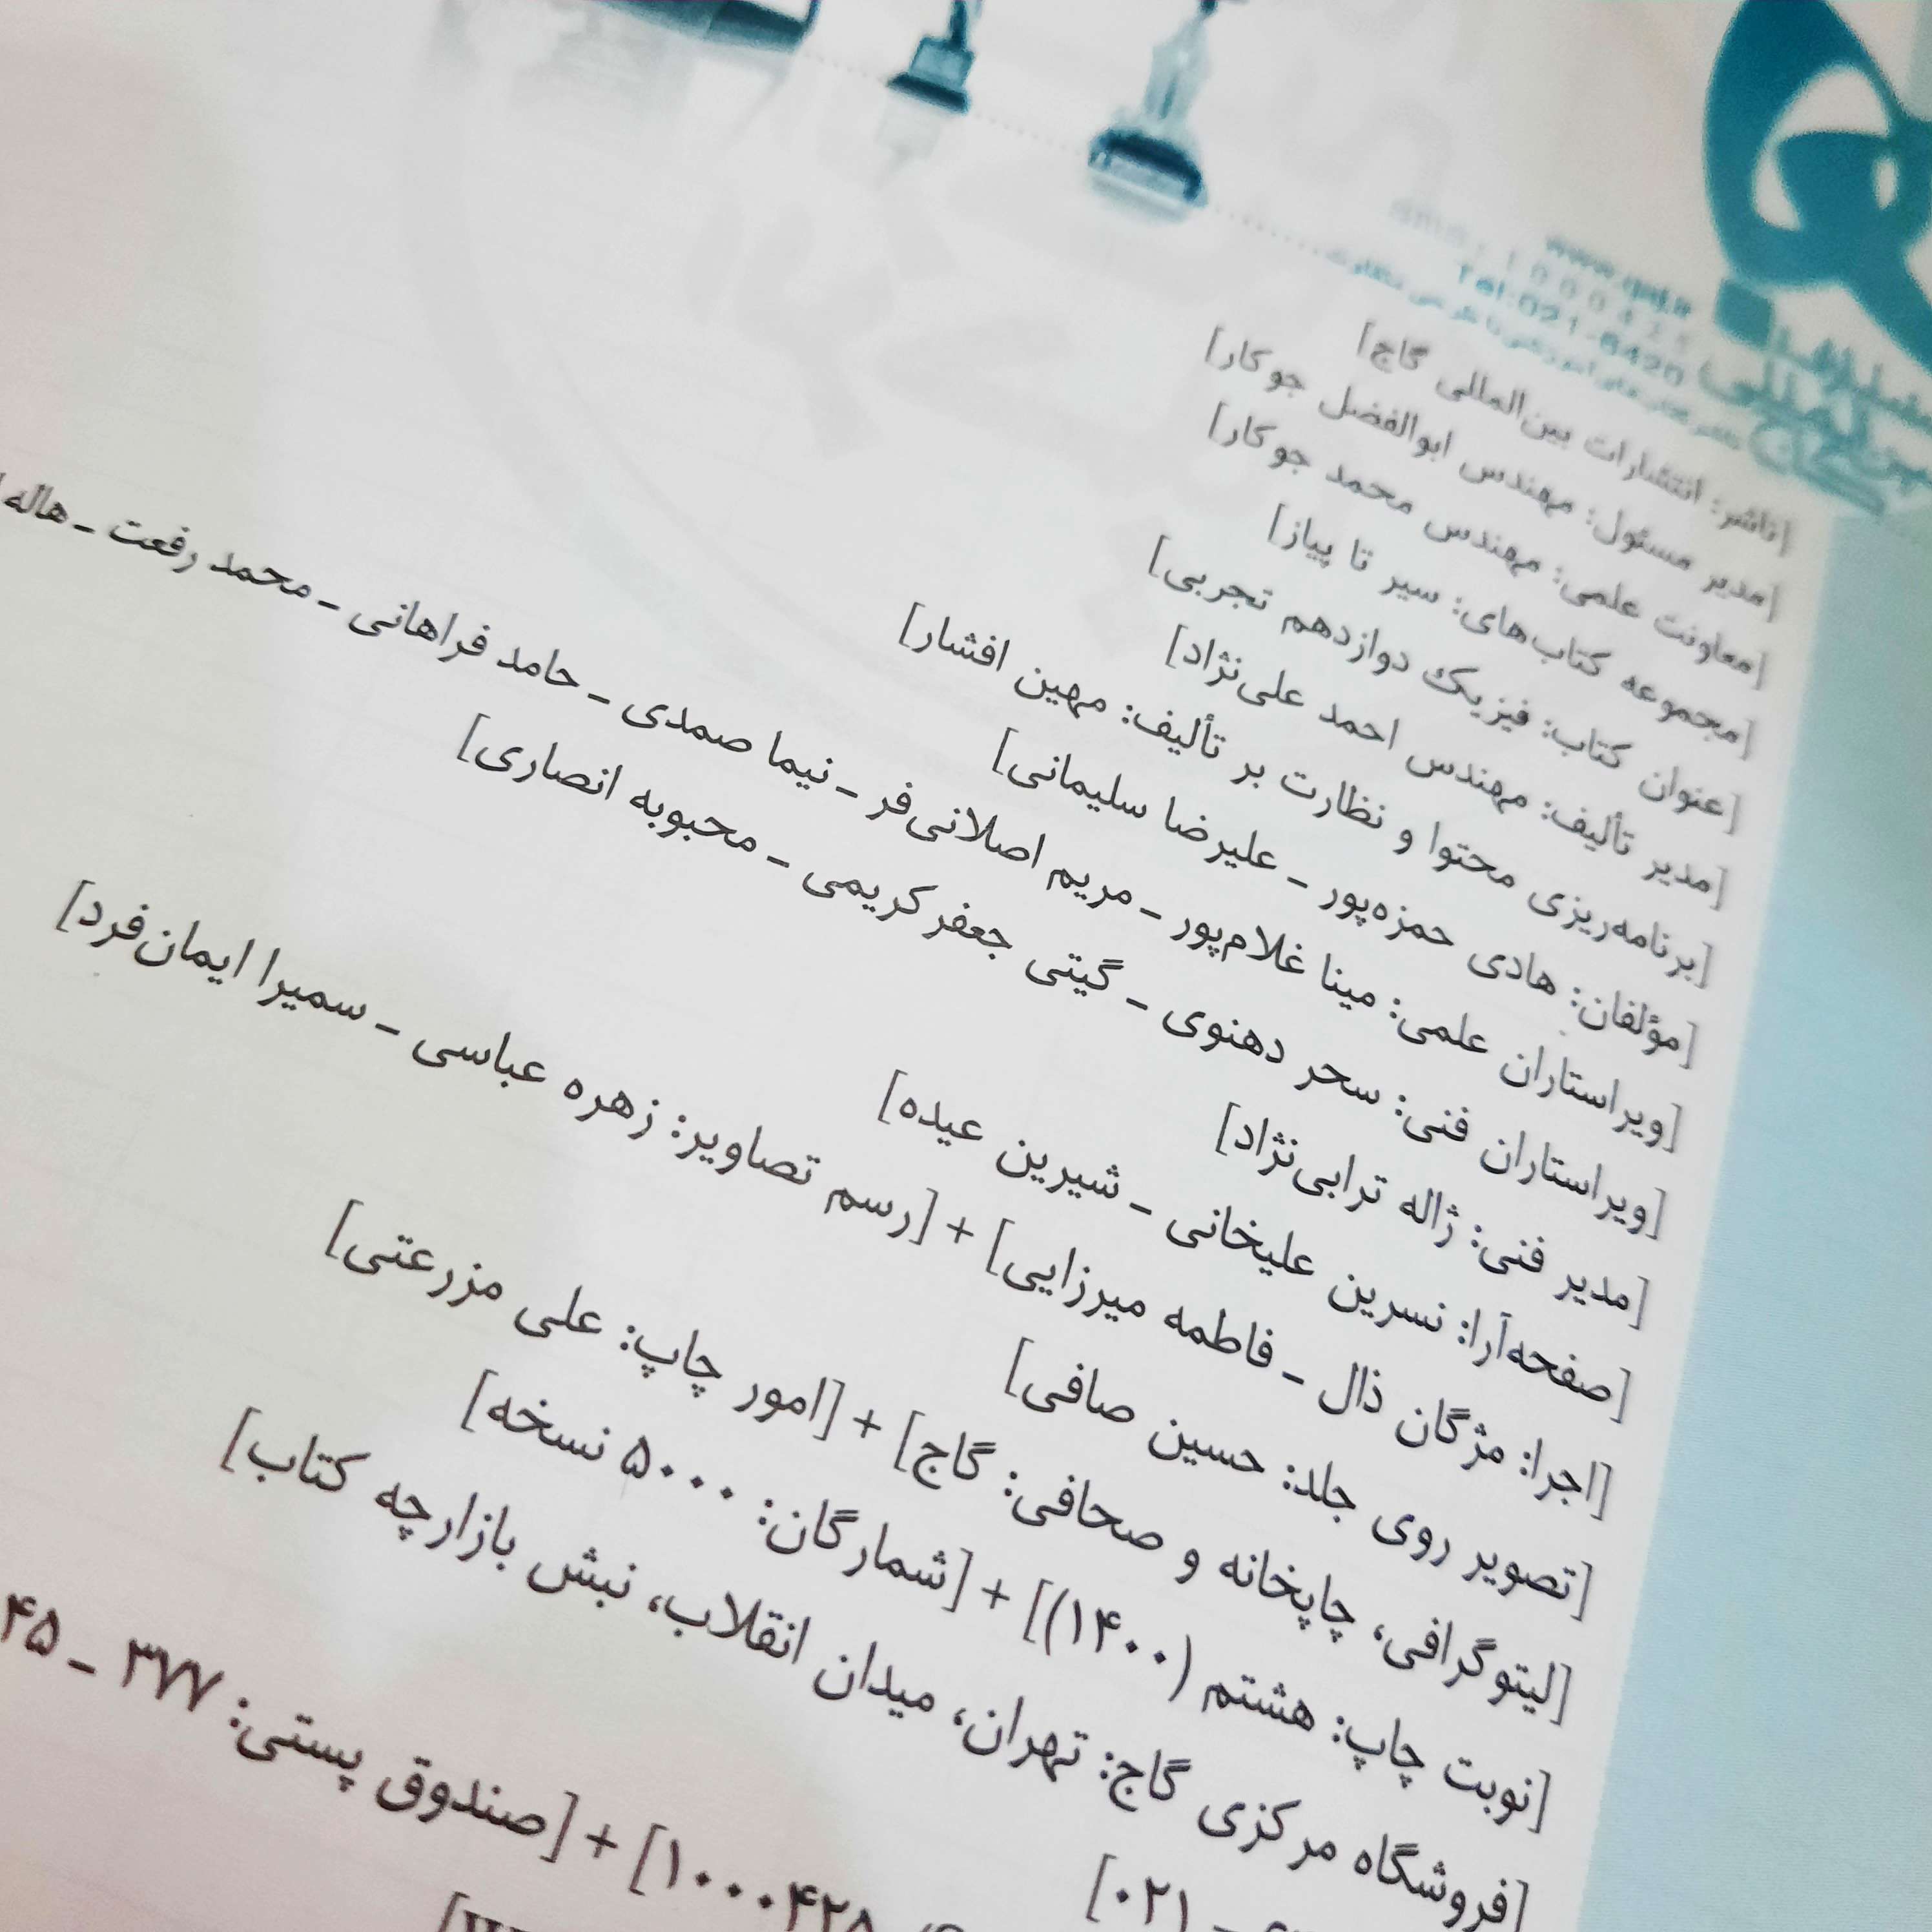 www.gaj.ir
Tel:021-6420
انتشارات
بین‌المللی
گاج
[ناشر: انتشارات بین‌المللی گاج]
[مدیر مسئول: مهندس ابوالفضل جوکار]
[معاونت علمی: مهندس محمد جوکار]
[مجموعه کتاب‌های: سیر تا پیاز]
[عنوان کتاب: فیزیک دوازدهم تجربی]
[مدیر تألیف: مهندس احمد علی‌نژاد]
[برنامه‌ریزی محتوا و نظارت بر تألیف: مهین افشار]
[مؤلفان: هادی حمزه‌پور ـ علیرضا سلیمانی]
[ویراستاران علمی: مینا غلام‌پور ـ مریم اصلانی‌فر ـ نیما صمدی ـ حامد فراهانی ـ محمد رفعت ـ هاله
[ویراستاران فنی: سحر دهنوی ـ گیتی جعفرکریمی ـ محبوبه انصاری]
[مدیر فنی: ژاله ترابی‌نژاد]
[صفحه‌آرا: نسرین علیخانی ـ شیرین عیده]
[اجرا: مژگان ذال ـ فاطمه میرزایی] + [رسم تصاویر: زهره عباسی ـ سمیرا ایمان‌فرد]
[تصویر روی جلد: حسین صافی]
[لیتوگرافی، چاپخانه و صحافی: گاج] + [امور چاپ: علی مزرعتی]
[نوبت چاپ: هشتم (۱۴۰۰)] + [شمارگان: ۵۰۰۰ نسخه]
[فروشگاه مرکزی گاج: تهران، میدان انقلاب، نبش بازارچه کتاب]
۰۲۱]
۱۰۰۰۴۲۸] + [صندوق پستی: ۳۷۷ ـ ۴۵